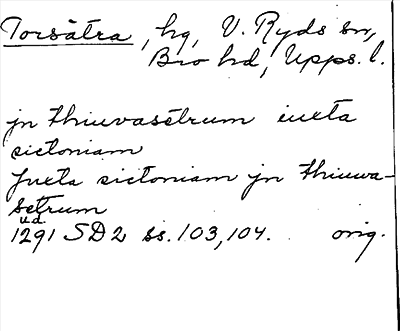 Torsåtra, hg, V. Ryds sn,
Bro hd, Upps. l.
jn thiuvasætrum iuxta
sictoniam
Juxta sictoniam jn thiuva-
setrum
u.d.
1291 SD2 ss. 103, 104. orig.